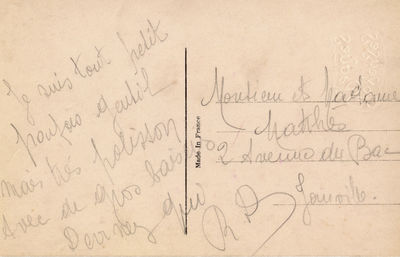 Je suis tout petit
parfois gentil
mais très polisson
Avec de gros baisers
Devinez qui
Made In France
Monsieur et Madame
Matthés
2 Avenue du Bac
Joinville.